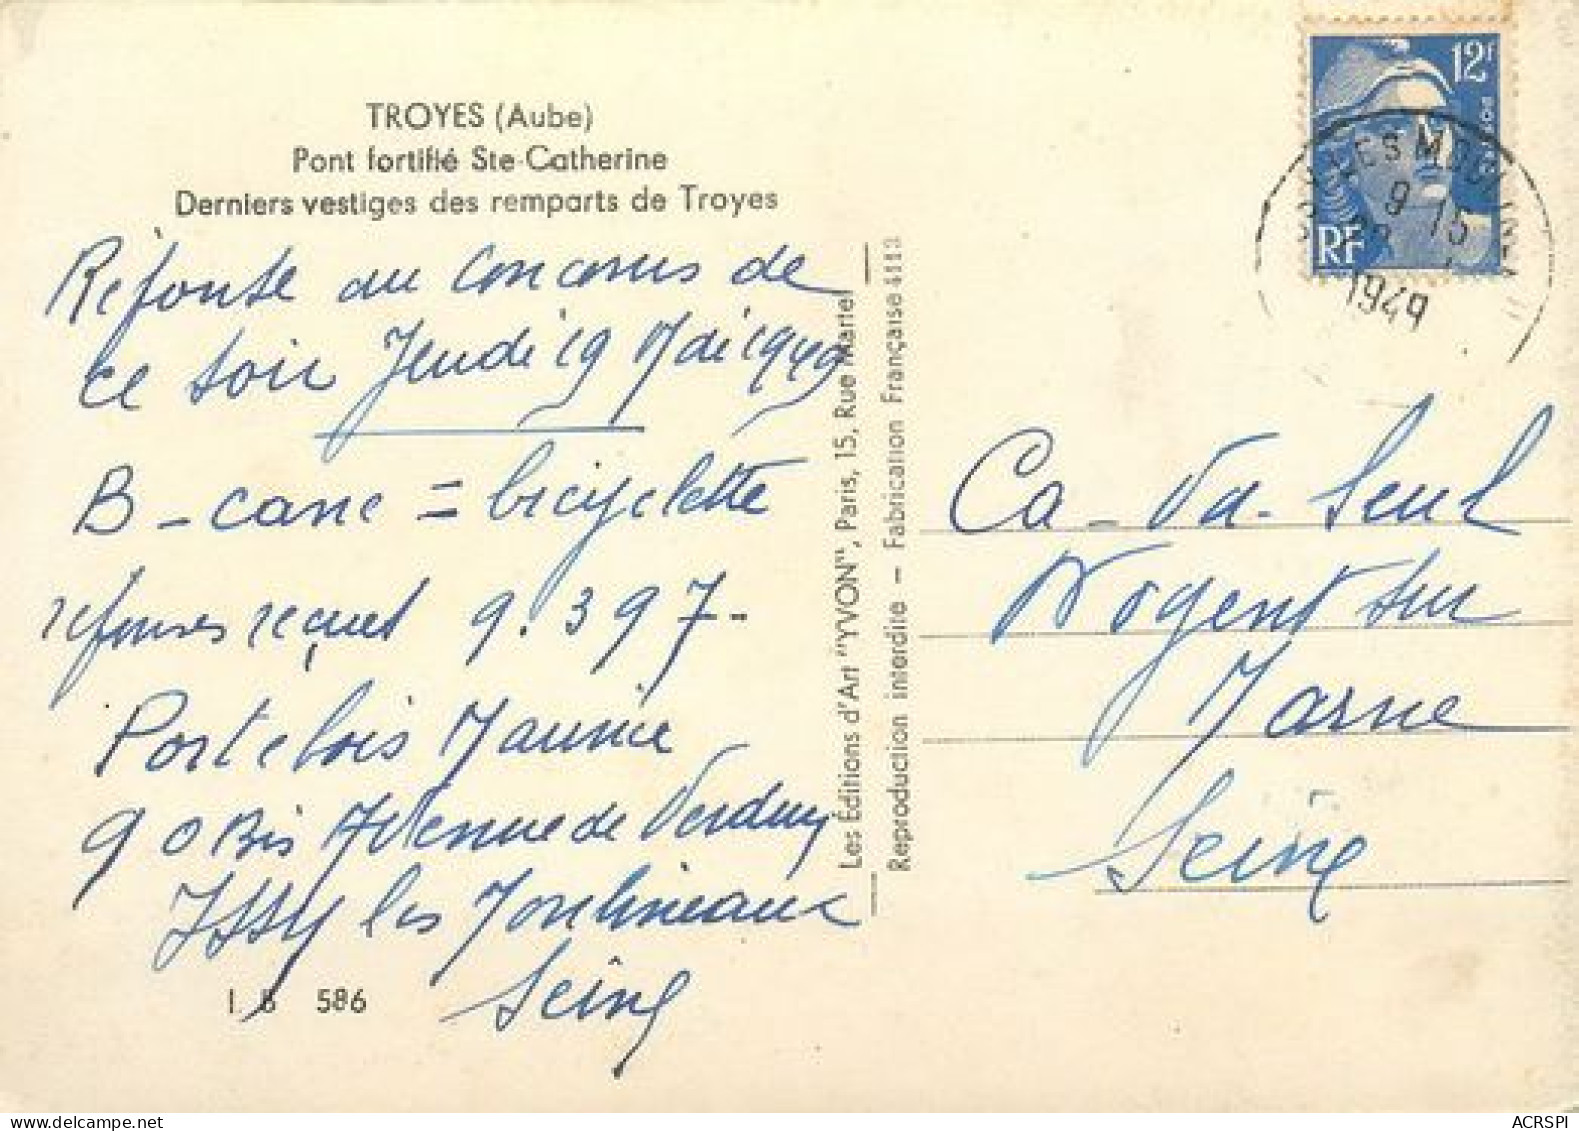 TROYES (Aube)
Pont fortifié Ste-Catherine
Derniers vestiges des remparts de Troyes
Réponse au concours de
ce soir Jeudi 19 Mai 1949
B - cane = bicyclette
réponses reçues 9.397-
Portebois Maurice
90 Bis Avenue de Verdun
ISSY les Moulineaux
Seine
I. B 586
Les Éditions d'Art "YVON", Paris, 15, Rue Martel
Reproduction interdite — Fabrication Française 4113
12f
POSTES
RF
LES MOULIN
9 15
1949
Ca - Va - Seul
Nogent sur
Marne
Seine
ACRSPI